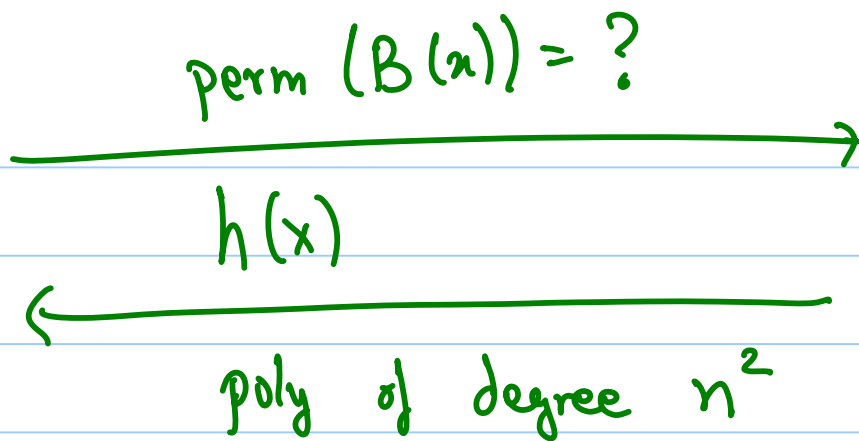 perm (B(x)) = ?
h(x)
poly of degree n²